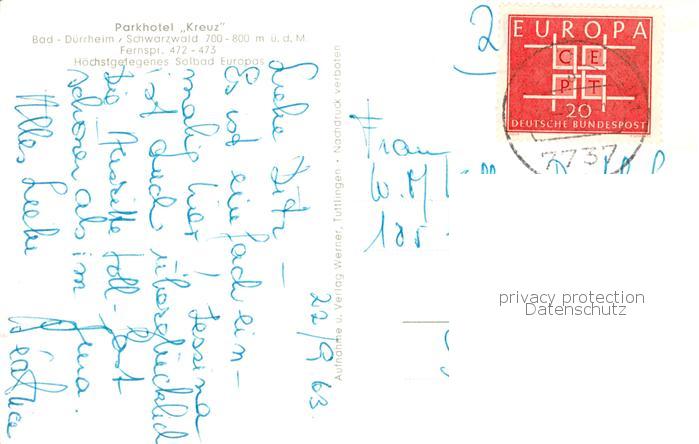 Parkhotel „Kreuz"
Bad - Dürrheim / Schwarzwald 700 - 800 m ü. d. M.
Fernspr. 472 - 473
Höchstgelegenes Solbad Europas
22/9 63.
Liebe
Es ist einfach ein-
malig hier!
ist auch überglücklich
Die toll - fast
schöner als im
Alles Liebe
Aufnahme u. Verlag Werner, Tuttlingen · Nachdruck verboten
2
EUROPA
CE
PT
20
DEUTSCHE BUNDESPOST
7737
Frau
W.
105
privacy protection
Datenschutz